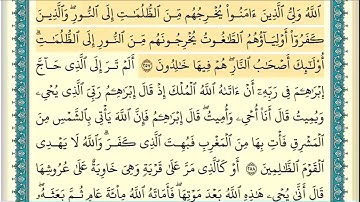 اللَّهُ وَلِيُّ الَّذِينَ ءَامَنُوا يُخْرِجُهُم مِّنَ الظُّلُمَاتِ إِلَى النُّورِ ۖ وَالَّذِينَ
كَفَرُوا أَوْلِيَاؤُهُمُ الطَّاغُوتُ يُخْرِجُونَهُم مِّنَ النُّورِ إِلَى الظُّلُمَاتِ ۗ
أُولَٰئِكَ أَصْحَابُ النَّارِ ۖ هُمْ فِيهَا خَالِدُونَ ٢٥٧ أَلَمْ تَرَ إِلَى الَّذِي حَاجَّ
إِبْرَاهِيمَ فِي رَبِّهِ أَنْ ءَاتَاهُ اللَّهُ الْمُلْكَ إِذْ قَالَ إِبْرَاهِيمُ رَبِّيَ الَّذِي يُحْيِي
وَيُمِيتُ قَالَ أَنَا أُحْيِي وَأُمِيتُ ۖ قَالَ إِبْرَاهِيمُ فَإِنَّ اللَّهَ يَأْتِي بِالشَّمْسِ مِنَ
الْمَشْرِقِ فَأْتِ بِهَا مِنَ الْمَغْرِبِ فَبُهِتَ الَّذِي كَفَرَ ۗ وَاللَّهُ لَا يَهْدِي
الْقَوْمَ الظَّالِمِينَ ٢٥٨ أَوْ كَالَّذِي مَرَّ عَلَىٰ قَرْيَةٍ وَهِيَ خَاوِيَةٌ عَلَىٰ عُرُوشِهَا
قَالَ أَنَّىٰ يُحْيِي هَٰذِهِ اللَّهُ بَعْدَ مَوْتِهَا ۖ فَأَمَاتَهُ اللَّهُ مِائَةَ عَامٍ ثُمَّ بَعَثَهُ ۖ